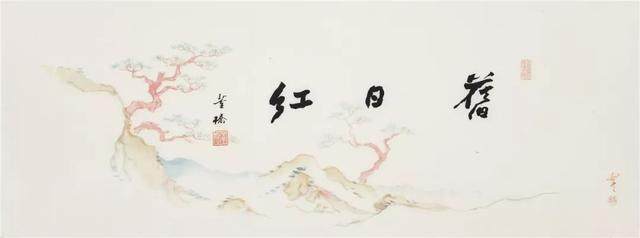 舊日紅
董橋